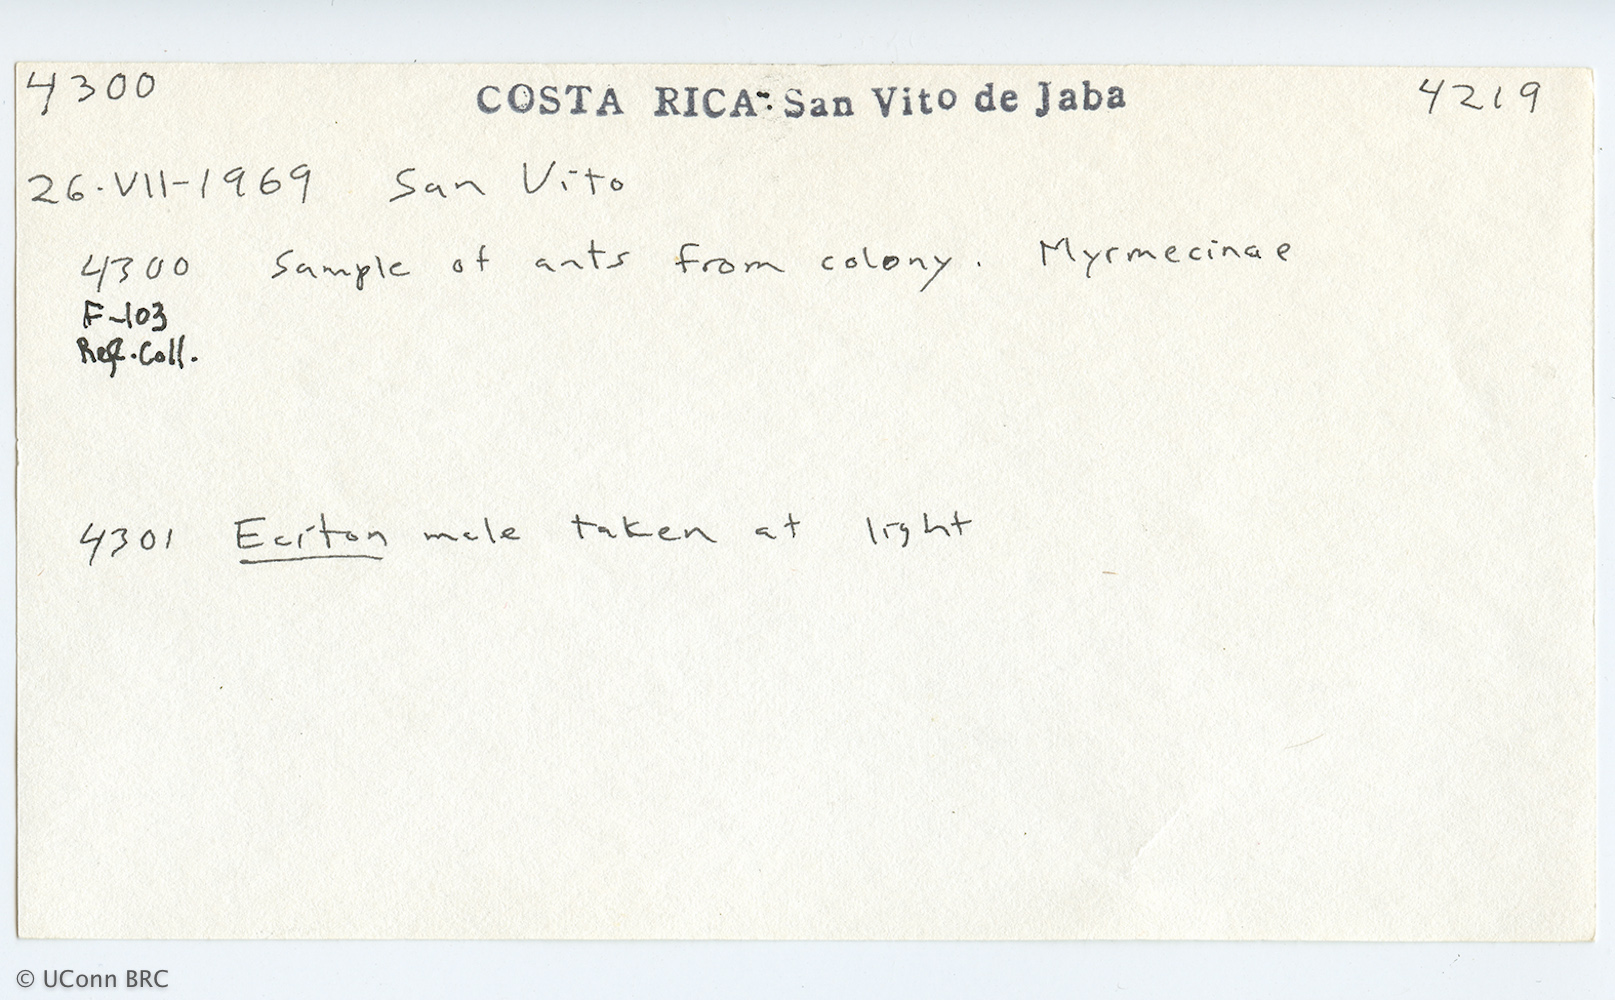 4300 COSTA RICA-: San Vito de Jaba 4219
26-VII-1969 San Vito
4300 Sample of ants from colony. Myrmecinae
F-103
Ref. Coll.
4301 Eciton male taken at light
© UConn BRC